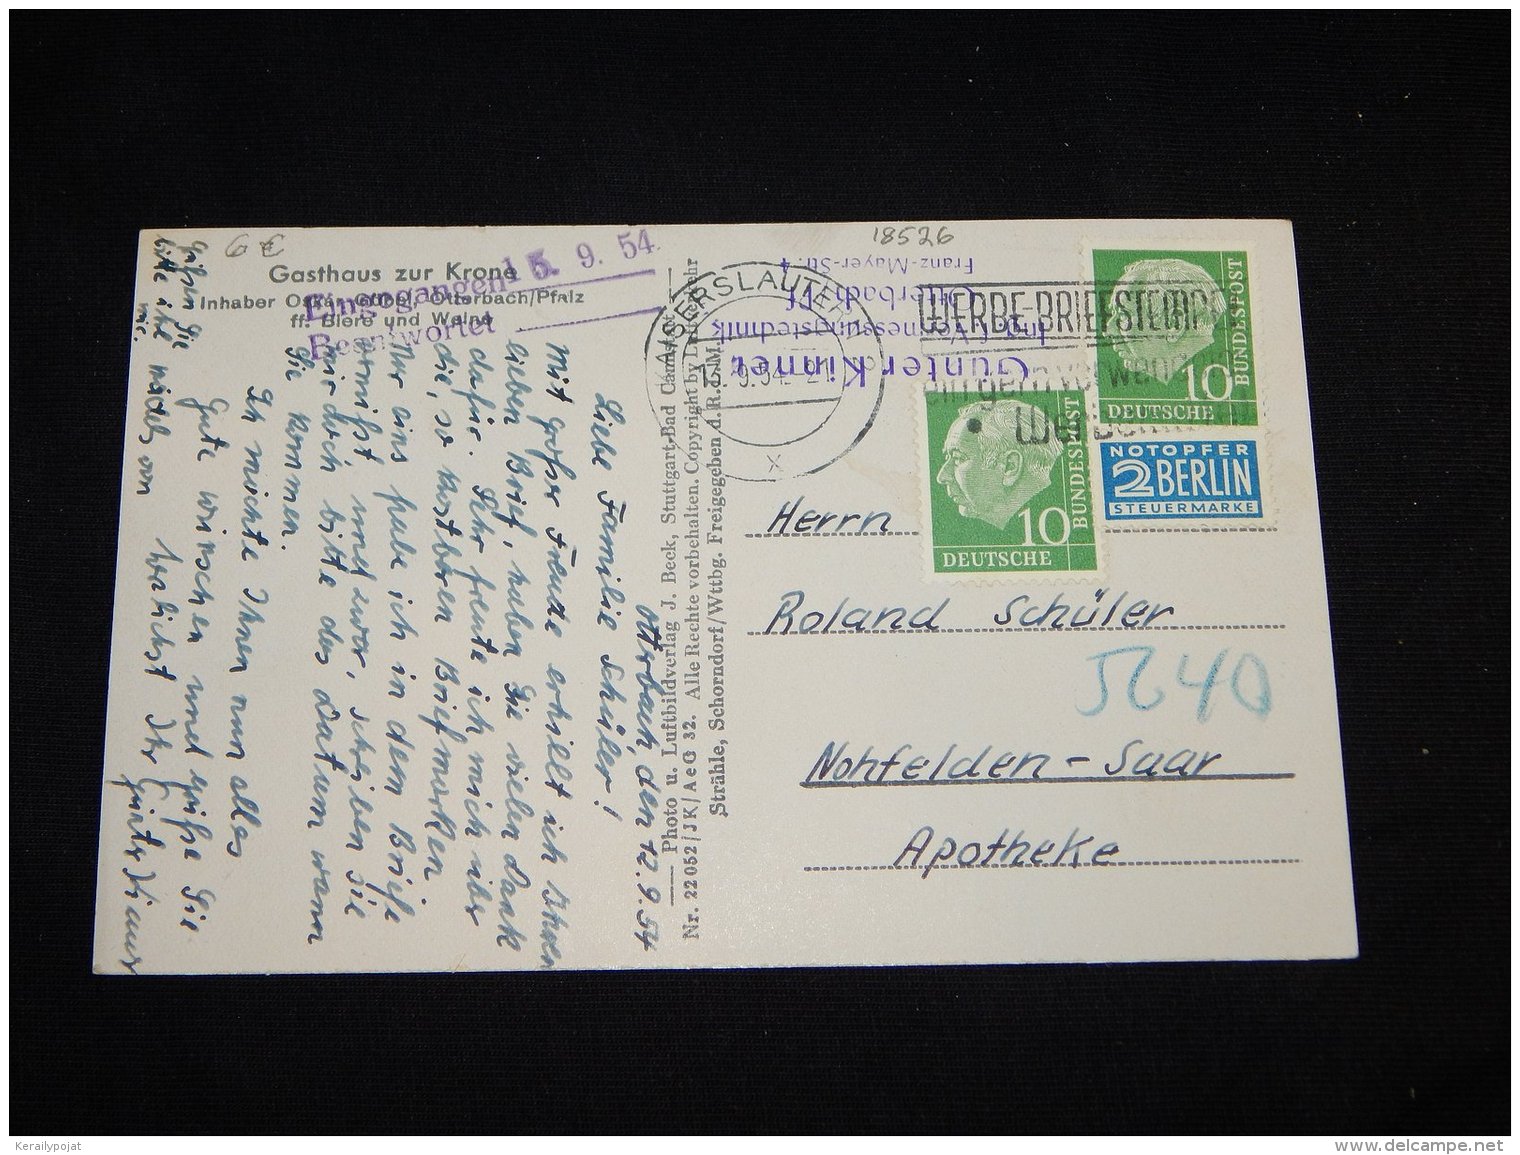 6 €
18526
Gasthaus zur Krone
Inhaber Oskar Göbel, Otterbach/Pfalz
ff. Biere und Weine
Eingegangen 15. 9. 54
Beantwortet
Otterbach, den 12.9.54
Liebe Familie Schüler!
Mit großer Freude erhielt ich Ihren
lieben Brief, haben Sie vielen Dank
dafür. Sehr freute ich mich über
die, so kostbaren Briefmarken
Nur eins habe ich in dem Briefe
vermißt, und zwar, schreiben Sie
mir doch bitte das Datum wann
Sie kommen.
Ich möchte Ihnen nun alles
Gute wünschen und grüße Sie
herzlichst Ihr Günter Kinner
Grüßen Sie
bitte von
mir.
Photo u. Luftbildverlag J. Beck, Stuttgart-Bad Cannstatt
Nr. 22052/JK/AeG 32. Alle Rechte vorbehalten. Copyright by Luftverkehr
Strähle, Schorndorf/Wttbg. Freigegeben d. R. L. M.
Günter Kinner
Ing. f. Vermessungstechnik
Otterbach Pf.
Franz-Mayer-Str. 4
KAISERSLAUTERN
9.54
WERBE-BRIEFSTEMPEL
10
DEUTSCHE
BUNDESPOST
10
DEUTSCHE
BUNDESPOST
NOTOPFER
2 BERLIN
STEUERMARKE
Herrn
Roland Schüler
5640
Nohfelden-Saar
Apotheke
Kerailypojat
www.delcampe.net